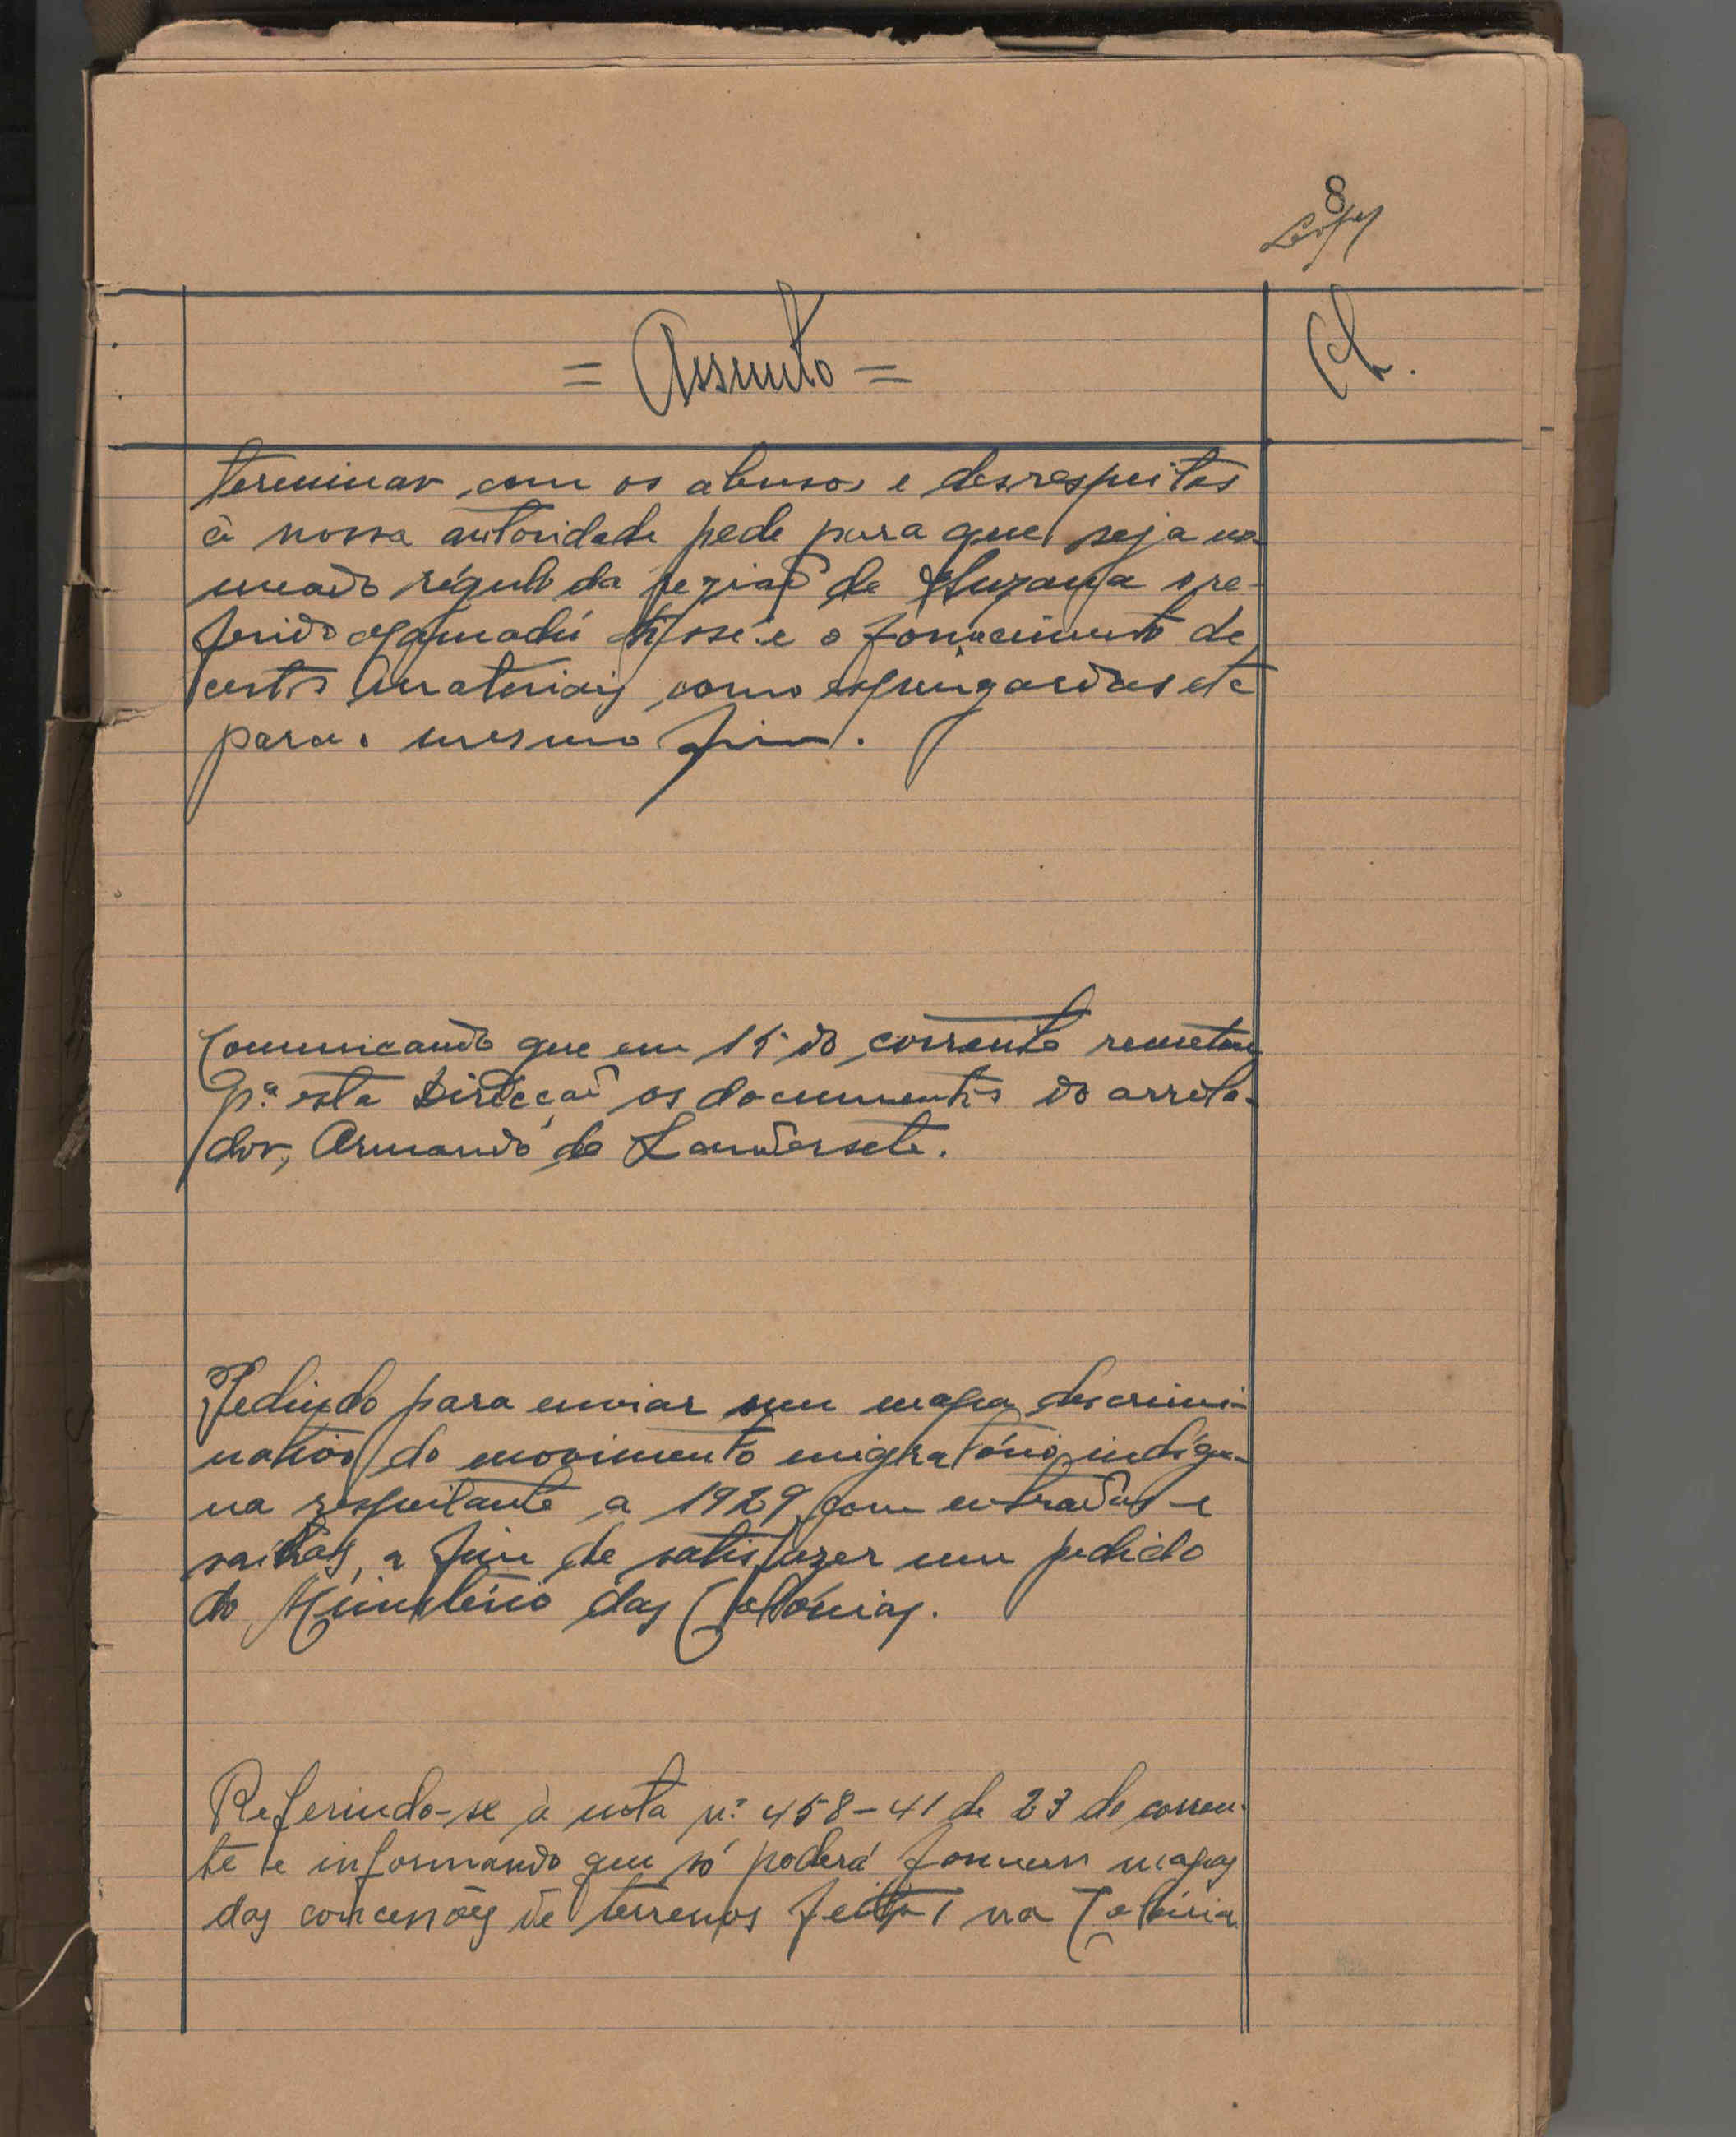 8
Lopes
= Assunto =
Cl.
terminar com os abusos e desrespeitos
á nossa autoridade pede para que seja no-
meado régulo da região de Suzana o re-
ferido Mamadú Sissé e o fornecimento de
certos materiais, como espingardas etc
para o mesmo fim.
Comunicando que em 15 do corrente remeteu
p.ª esta Direcção os documentos do arrola-
dor, Armando de Landerset.
Pedindo para enviar um mapa descrimi-
nativo do movimento migratório indíge-
na respeitante a 1929, com entradas e
saídas, a fim de satisfazer um pedido
do Ministério das Colónias.
Referindo-se à nota n.º 458-41 de 23 do corren-
te e informando que só poderá fornecer mapas
das concessões de terrenos feitas na Colónia